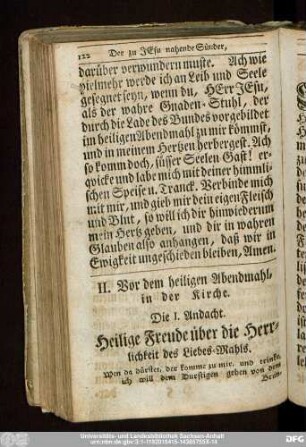 122 Der zu JEsu nahende Sünder,
darüber verwundern muste. Ach wie
vielmehr werde ich an Leib und Seele
gesegnet seyn, wenn du, HErr JEsu,
als der wahre Gnaden-Stuhl, der
durch die Lade des Bundes vorgebildet
im heiligen Abendmahl zu mir kömmst,
und in meinem Hertzen herbergest. Ach
so komm doch, süsser Seelen Gast! er-
qvicke und labe mich mit deiner himmli-
schen Speise u. Tranck. Verbinde mich
mit mir, und gieb mir dein eigen Fleisch
und Blut, so will ich dir hinwiederum
mein Hertz geben, und dir in wahren
Glauben also anhangen, daß wir in
Ewigkeit ungeschieden bleiben, Amen.
II. Vor dem heiligen Abendmahl,
in der Kirche.
Die I. Andacht.
Heilige Freude über die Herr-
lichkeit des Liebes-Mahls.
Wen da dürstet, der komme zu mir, und trincke,
ich will dem Durstigen geben von dem
Brun-
Universitäts- und Landesbibliothek Sachsen-Anhalt